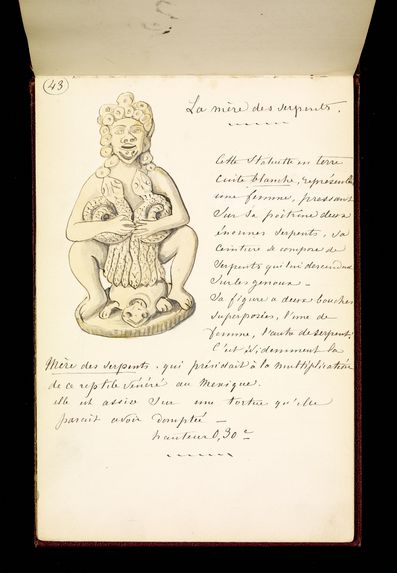 43
La mère des serpents.
Cette Statuette en terre
cuite blanche, représente
une femme, pressant
Sur Sa poitrine deux
énormes Serpents, Sa
Ceinture se compose de
Serpents qui lui descendent
Sur les genoux —
Sa figure a deux bouches
Superposées, l'une de
femme, l'autre de serpent.
C'est évidemment la
Mère des Serpents, qui présidait à la multiplication
de ce reptile vénéré au Mexique.
elle est assise Sur une tortue qu'elle
parait avoir domptée —
hauteur 0,30 c